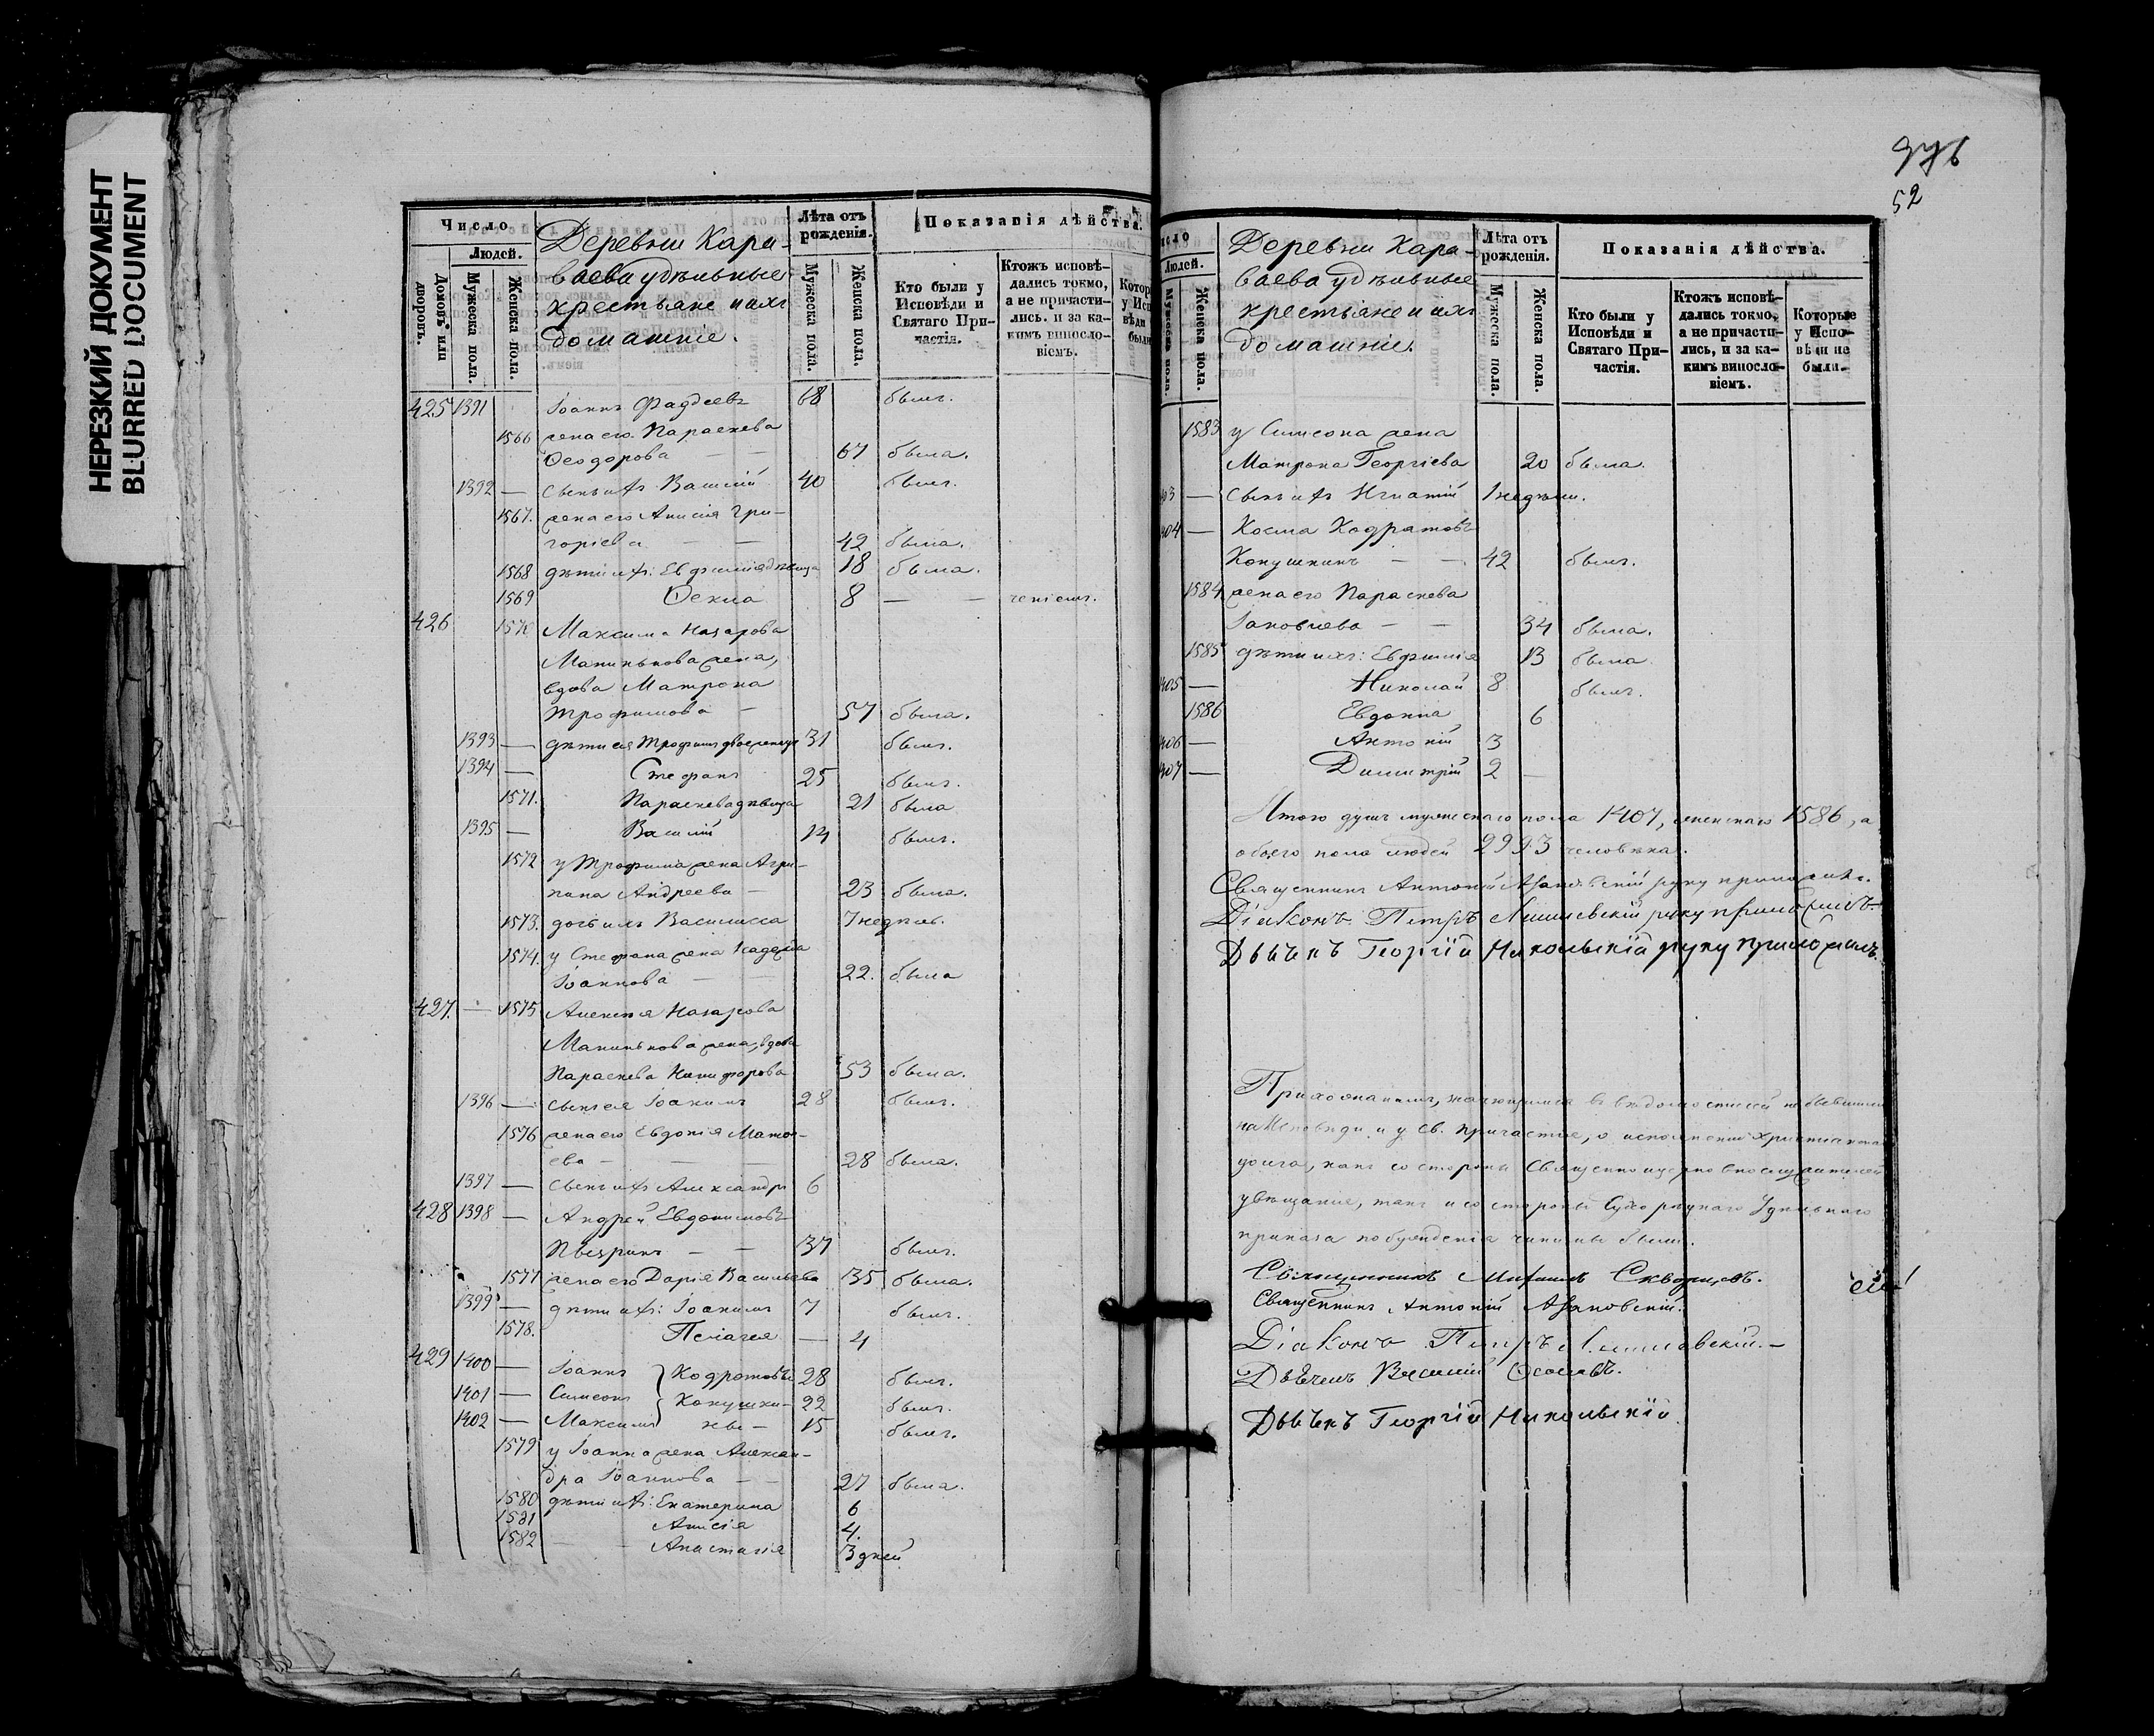 НЕРЕЗКИЙ ДОКУМЕНТ
BLURRED DOCUMENT
Число
Людей.
Домовъ или дворовъ.
Мужеска пола.
Женска пола.
Деревни Кара-
ваева удѣльные
крестьяне и ихъ
домашніе.
Лѣта отъ рожденія.
Мужеска пола.
Женска пола.
Показанія дѣйства.
Кто были у Исповѣди и Святаго При-частія.
Ктожъ исповѣ-дались токмо, а не причасти-лись. и за ка-кимъ винословіемъ.
425 1391 Іоаннъ Фаддеевъ 68 былъ.
1566 жена его Параскева
Ѳеодорова — — 67 была.
1392 — сынъ ихъ Василій 40 былъ.
1567. жена его Анисія Гри-
горіева — — 42 была.
1568 дѣти ихъ: Евфимія дѣвица 18 была.
1569 Ѳекла 8 — —
426 1570 Максима Назарова
Манинькова жена,
вдова Матрона
Трофимова — 57 была.
1393 — дѣти ея Трофимъ 31 былъ.
1394 — Стефанъ 25 былъ.
1571. Параскева дѣвица 21 была
1395 — Василій 14 былъ.
1572 у Трофима жена Агри-
пина Андреева — 23 была.
1573. дочь ихъ Василисса 7 недѣль.
1574. у Стефана жена Надежда
Іоаннова — 22. была
427. — 1575 Алексѣя Назарова
Манинькова жена, вдова
Параскева Никифорова 53 была.
1396 — сынъ ея Іоакимъ 28 былъ.
1576 жена его Евдокія Матѳ-
ева — — — 28 была.
1397 — сынъ ихъ Александръ 6
428 1398 — Андрей Евдокимовъ
Пызринъ — — 37 былъ.
1577 жена его Дарія Васильева 35 была.
1399 — дѣти ихъ: Іоакимъ 7 былъ.
1578. Пелагея — 4
429 1400 — Іоаннъ Кодратовы 28 былъ.
1401 — Симеонъ Конушки- 22 былъ.
1402 — Максимъ ны — 15 былъ.
1579 у Іоанна жена Алексан-
дра Іоаннова — — 27 была.
1580 дѣти ихъ: Екатерина 6
1581 Анисія 4.
1582 — — Анастасія 3 дней
52
Людей.
Женска пола.
Деревни Кара-
ваева удѣльные
крестьяне и ихъ
домашніе.
Лѣта отъ рожденія.
Мужеска пола.
Женска пола.
Показанія дѣйства.
Кто были у Исповѣди и Святаго При-частія.
Ктожъ исповѣ-дались токмо, а не причасти-лись, и за ка-кимъ винословіемъ.
Которые у Испо-вѣди не были.
1583 у Симеона жена
Матрона Георгіева 20 была.
03 — сынъ ихъ Игнатій 1 недѣли.
404 — Косма Кодратовъ
Конушкинъ — — 42 былъ.
1584 жена его Параскева
Іаковлева — — 34 была.
1585 дѣти ихъ: Евфимія 13 была
405 — Николай 8 былъ.
1586 Евдокиа 6
406 — Антоній 3
407 — Димитрій 2 —
Итого душъ мужескаго пола 1407, женскаго 1586, а
обоего пола людей 2993 человѣка.
Священникъ Антоній руку приложилъ.
Діаконъ Петръ руку приложилъ.
Дьячекъ Георгій Никольскій руку приложилъ.
Прихожанамъ, въ вѣдомости сей не бывшимъ
на Исповѣди и у св. причастія, о исполненіи христіанскаго
долга, какъ со стороны священноцерковнослужителей
увѣщанія, такъ и со стороны Удѣльнаго
приказа побужденія чинимы были.
Священникъ Михаилъ Скворцовъ.
Священникъ Антоній
Діаконъ Петръ
Дьячекъ Василій
Дьячекъ Георгій Никольскій.